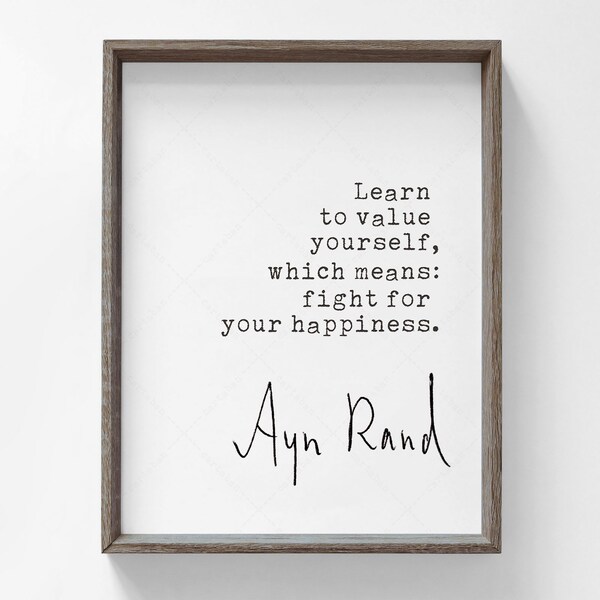 Learn
to value
yourself,
which means:
fight for
your happiness.
Ayn Rand